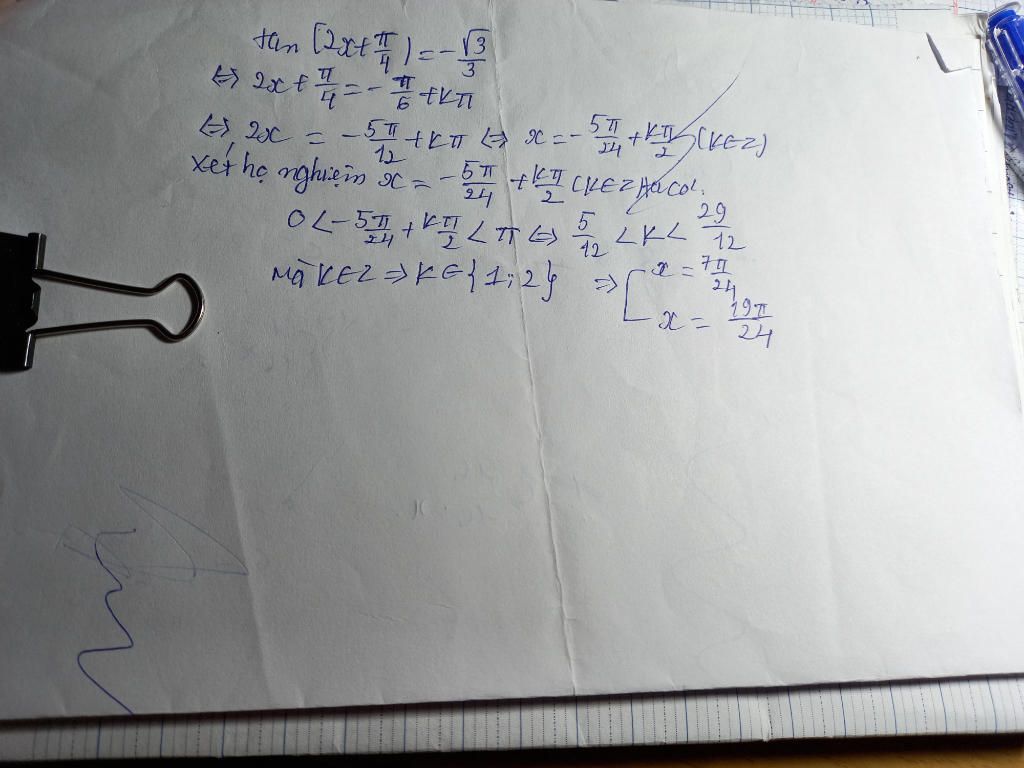 tan (2x+π/4) = -√3/3
⇔ 2x + π/4 = -π/6 + kπ
⇔ 2x = -5π/12 + kπ ⇔ x = -5π/24 + kπ/2 (k∈Z)
xét họ nghiệm x = -5π/24 + kπ/2 (k∈Z) ta có:
0 < -5π/24 + kπ/2 < π ⇔ 5/12 < k < 29/12
mà k∈Z ⇒ k∈{1;2} ⇒ [ x = 7π/24
x = 19π/24